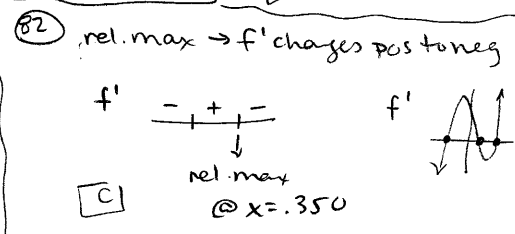 82 rel. max → f' chages pos to neg
f' - + -
f'
rel. max
@ x = .350
C